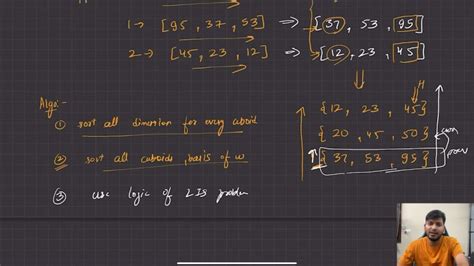 1 → [95, 37, 53] ⇒ [37, 53, 95]
2 → [45, 23, 12] ⇒ [12, 23, 45]
H
{12, 23, 45}
{20, 45, 50}
{37, 53, 95}
curr
prev
Algo:-
① sort all dimension for every cuboid
② sort all cuboids, basis of w
③ use logic of LIS problem